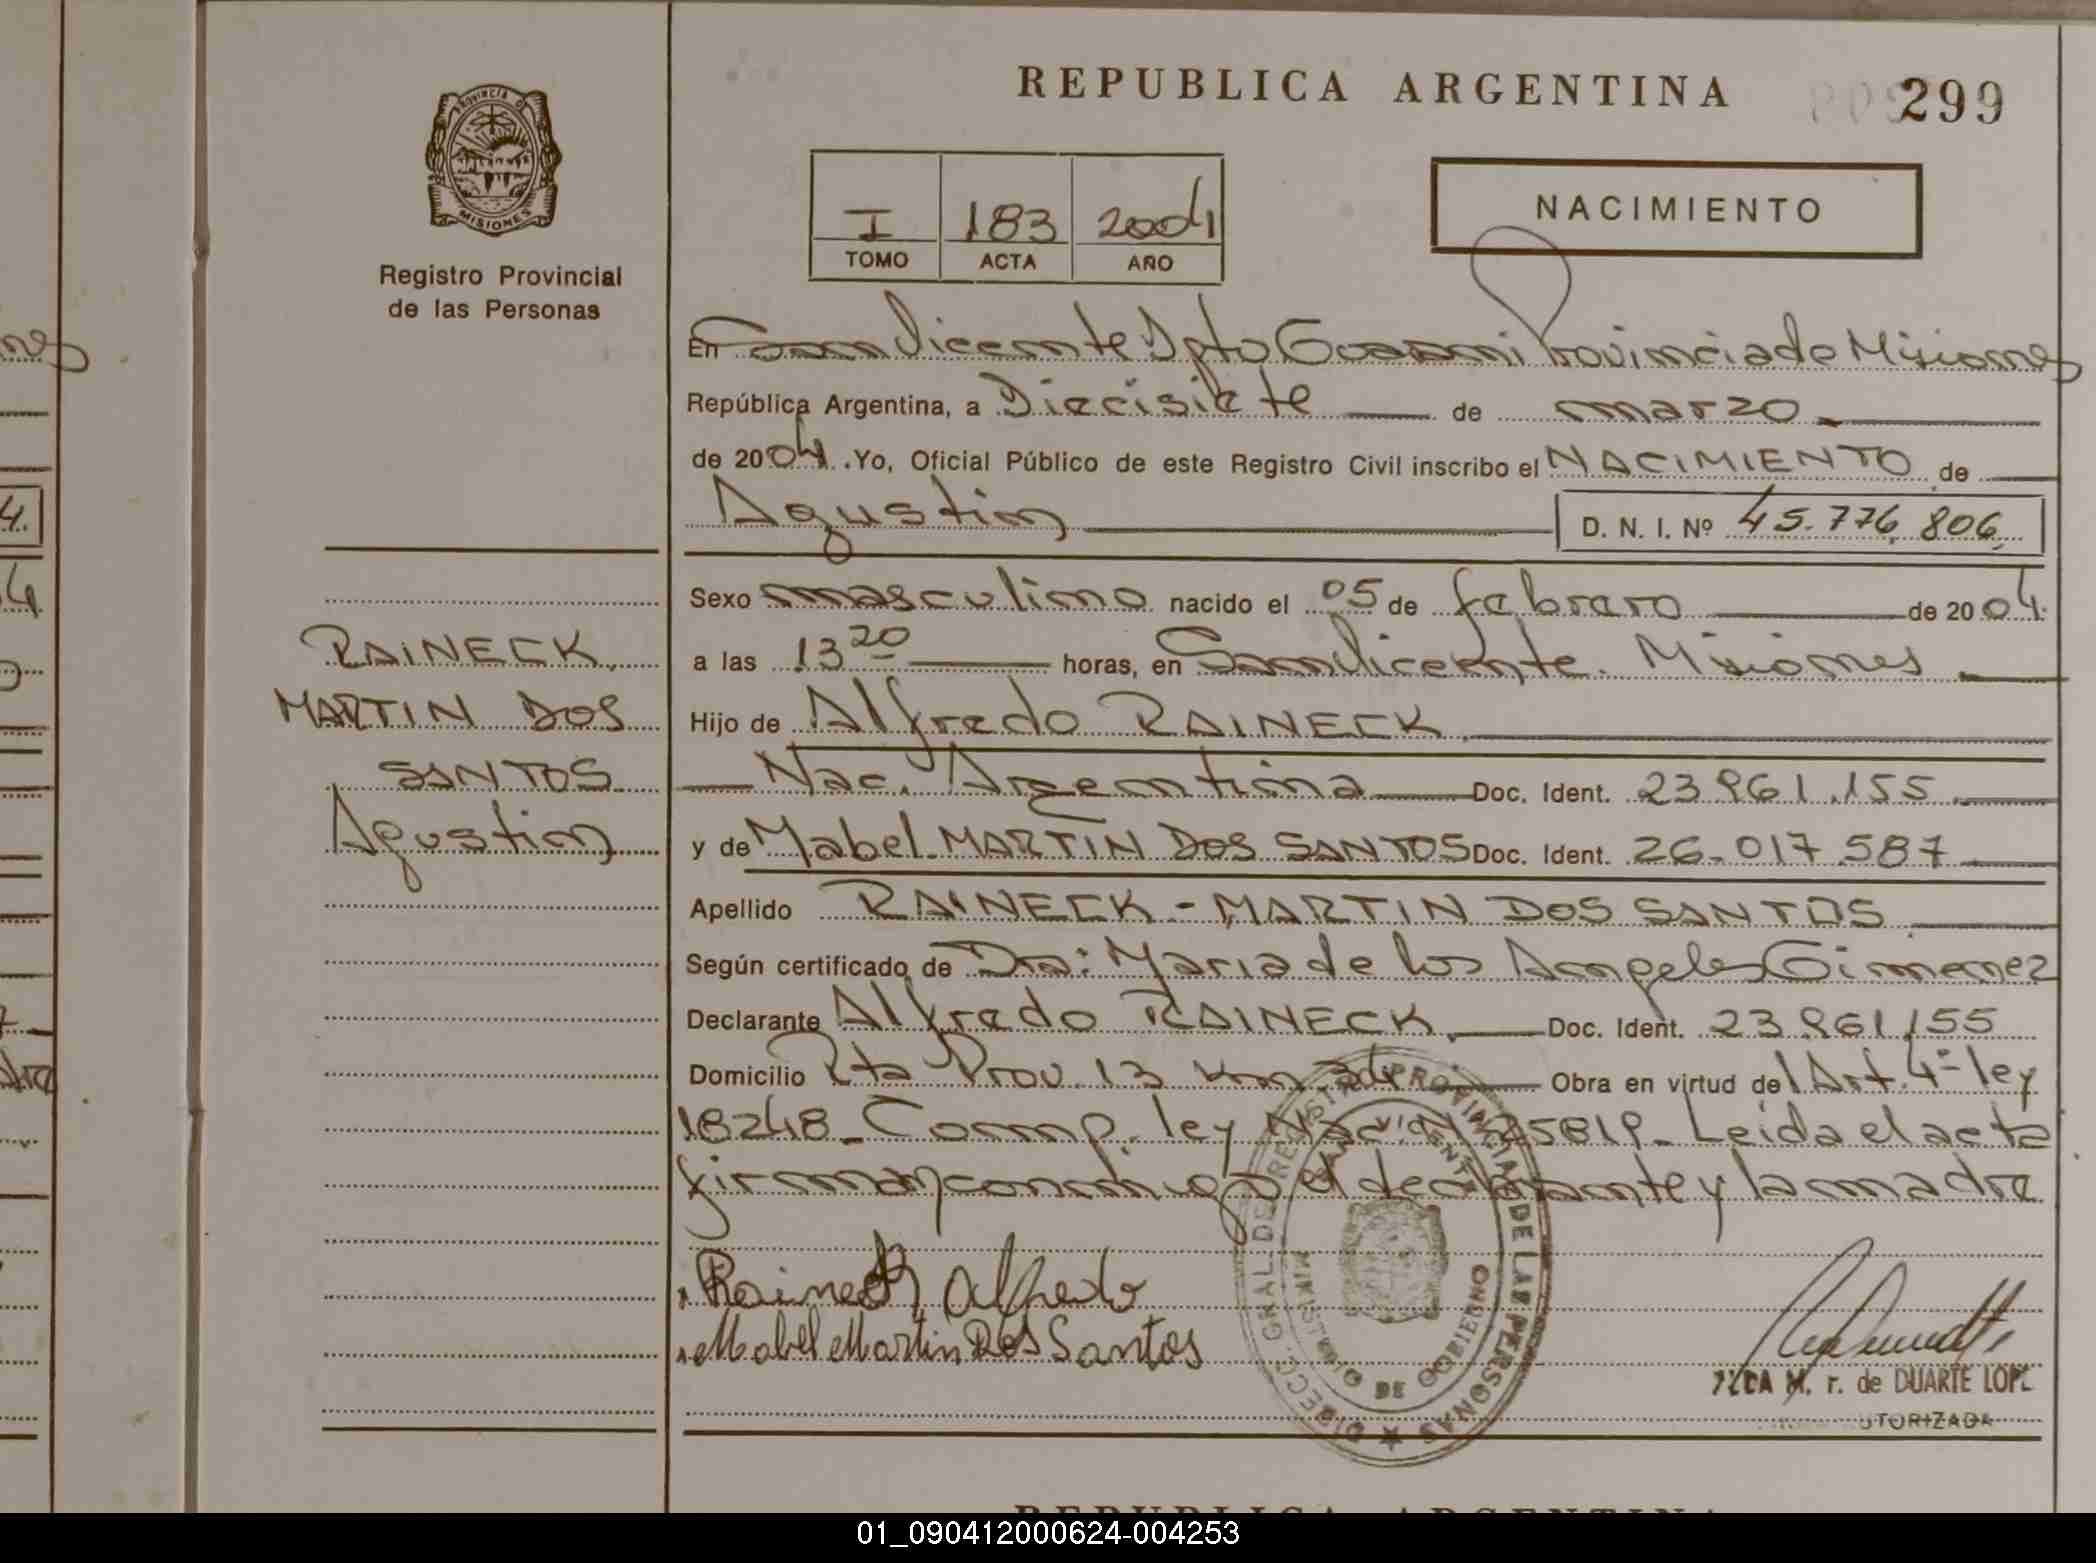 REPUBLICA ARGENTINA
299
PROVINCIA DE
MISIONES
Registro Provincial
de las Personas
I 183 2004
TOMO ACTA AÑO
NACIMIENTO
En San Vicente Dpto Guarani Provincia de Misiones
República Argentina, a Diecisiete de marzo
de 2004. Yo, Oficial Público de este Registro Civil inscribo el NACIMIENTO de
Agustin D. N. I. Nº 45.776.806
Sexo masculino nacido el 05 de febrero de 2004.
a las 13 20 horas, en San Vicente. Misiones
Hijo de Alfredo RAINECK.
Nac. Argentina Doc. Ident. 23.961.155
y de Mabel MARTIN DOS SANTOS Doc. Ident. 26.017.587
Apellido RAINECK - MARTIN DOS SANTOS
Según certificado de Dra: Maria de los Angeles Gimenez
Declarante Alfredo RAINECK Doc. Ident. 23.961.155
Domicilio Rta Prov. 13 Km 34 Obra en virtud del Art. 4º ley
18248 - Comp. ley Nac. Nº 25819 - Leida el acta
firman conmigo el declarante y la madre
RAINECK
MARTIN DOS
SANTOS
Agustin
Raineck Alfredo
Mabel Martin Dos Santos
DIRECC. GRAL. DE REGISTRO PROVINCIAL DE LAS PERSONAS
SAN VICENTE
MINISTERIO DE GOBIERNO
M. r. de DUARTE LOPE
UTORIZADA
REPUBLICA ARGENTINA
01_090412000624-004253